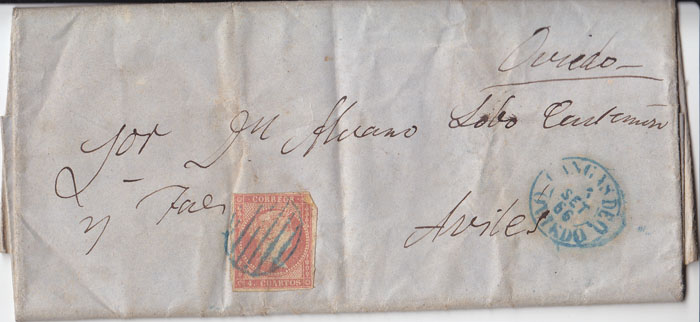 Oviedo
Sor Dn Alvaro Lobo Castrillon
y Faes
Aviles
CORREOS
4. CUARTOS
CANGAS DE O.
1
SET
56
OVIEDO